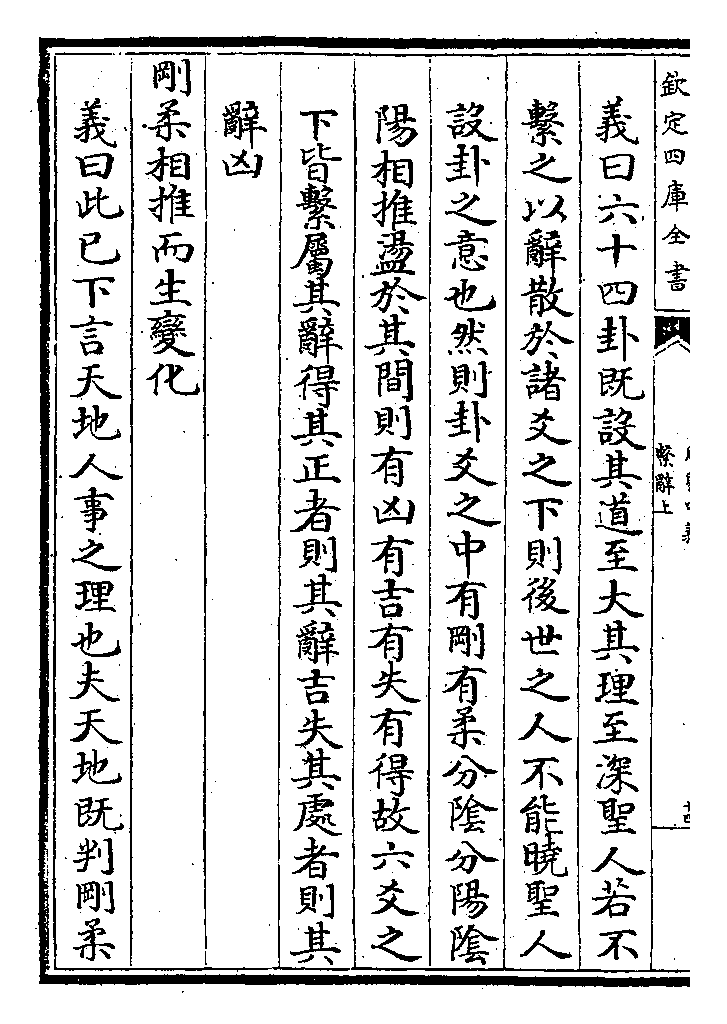 欽定四庫全書
繫辭上
義曰六十四卦既設其道至大其理至深聖人若不
繫之以辭散於諸爻之下則後世之人不能曉聖人
設卦之意也然則卦爻之中有剛有柔分陰分陽陰
陽相推盪於其間則有凶有吉有失有得故六爻之
下皆繫屬其辭得其正者則其辭吉失其處者則其
辭凶
剛柔相推而生變化
義曰此已下言天地人事之理也夫天地既判剛柔